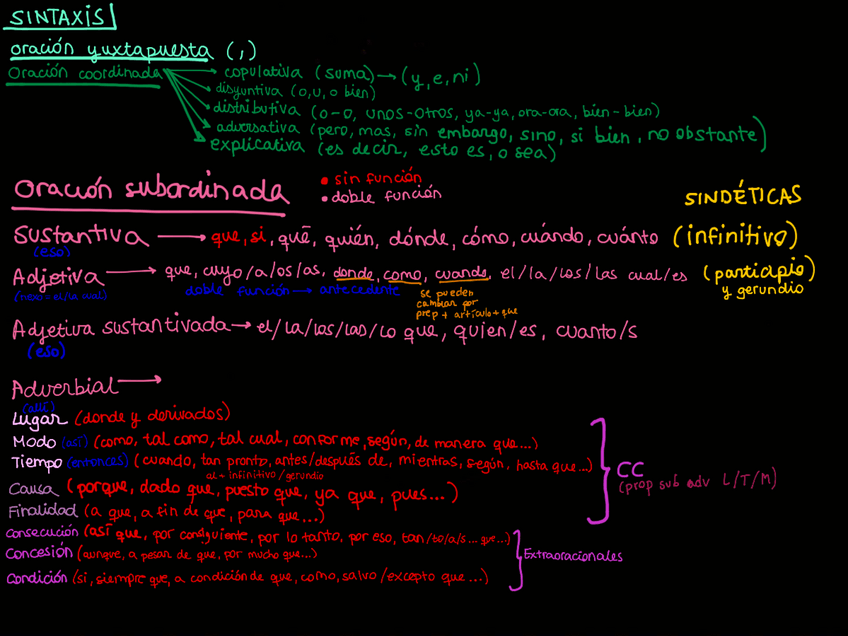 SINTAXIS
oración yuxtapuesta (,)
Oración coordinada
copulativa (suma) → (y, e, ni)
disyuntiva (o, u, o bien)
distributiva (o-o, unos-otros, ya-ya, ora-ora, bien-bien)
adversativa (pero, mas, sin embargo, sino, si bien, no obstante)
explicativa (es decir, esto es, o sea)
Oración subordinada
• sin función
• doble función
SINDÉTICAS
Sustantiva → que, si, qué, quién, dónde, cómo, cuándo, cuánto (infinitivo)
(eso)
Adjetiva → que, cuyo/a/os/as, donde, como, cuando, el/la/los/las cual/es (participio)
y gerundio
(nexo = el/la cual) doble función → antecedente
se pueden
cambiar por
prep + artículo + que
Adjetiva sustantivada → el/la/los/las/lo que, quien/es, cuanto/s
(eso)
Adverbial →
(allí)
Lugar (donde y derivados)
Modo (así) (como, tal como, tal cual, conforme, según, de manera que...)
Tiempo (entonces) (cuando, tan pronto, antes/después de, mientras, según, hasta que...)
al + infinitivo/gerundio
Causa (porque, dado que, puesto que, ya que, pues...)
Finalidad (a que, a fin de que, para que...)
CC
(prop sub adv L/T/M)
Consecución (así que, por consiguiente, por lo tanto, por eso, tan/to/a/s... que...)
Concesión (aunque, a pesar de que, por mucho que...)
Condición (si, siempre que, a condición de que, como, salvo/excepto que...)
Extraoracionales